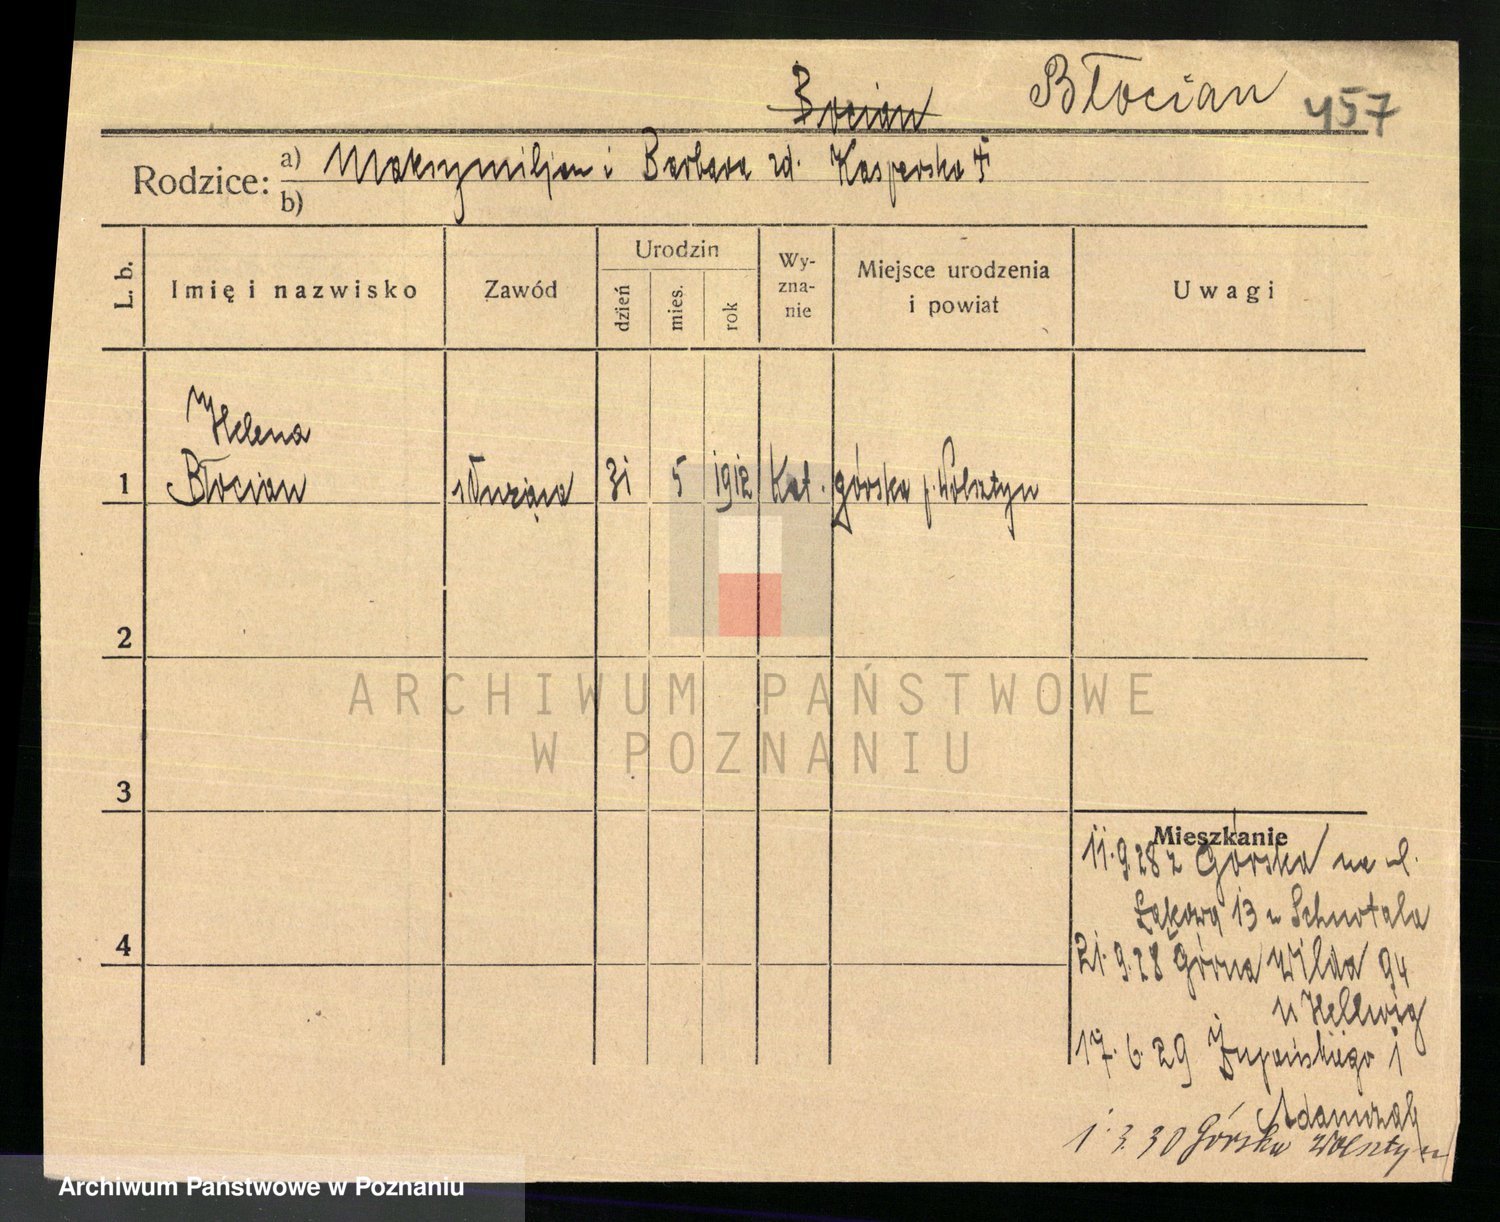 Bocian Błocian 457
Rodzice: a) Maksymiljan i Barbara zd. Kasperska
b)
L. b. Imię i nazwisko Zawód Urodzin dzień mies. rok Wyznanie Miejsce urodzenia i powiat Uwagi
Helena
1 Błocian służąca 31 5 1912 Kat. Górska p. Wolsztyn
2
ARCHIWUM PAŃSTWOWE
W POZNANIU
3
Mieszkanie
11.9.28 z Górska na ul.
Łąkową 13 u
4
21.9.28 Górna Wilda 94
u Hellwig
17.6.29 Żupańskiego 1
Adamczak
1.3.30 Górsko Wolsztyn
Archiwum Państwowe w Poznaniu